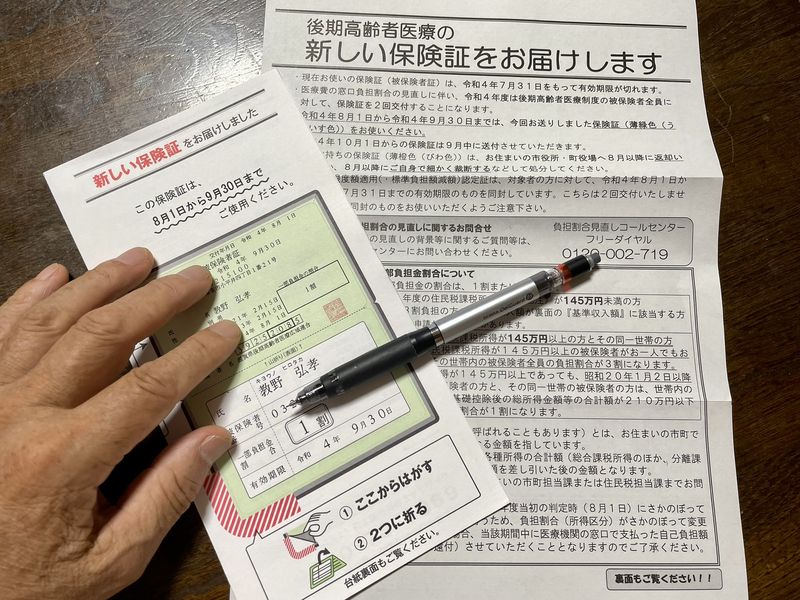 後期高齢者医療の
新しい保険証をお届けします
・現在お使いの保険証（被保険者証）は、令和4年7月31日をもって有効期限が切れます。
・医療費の窓口負担割合の見直しに伴い、令和4年度は後期高齢者医療制度の被保険者全員に
対して、保険証を2回交付することになります。
令和4年8月1日から令和4年9月30日までは、今回お送りしました保険証（薄緑色（う
いす色））をお使いください。
4年10月1日からの保険証は9月中に送付させていただきます。
持ちの保険証（薄橙色（びわ色））は、お住いの市役所・町役場へ8月以降に返却い
、8月以降にご自身で細かく裁断するなどして処分してください。
度額適用（・標準負担額減額）認定証は、対象者の方に対して、令和4年8月1日か
7月31日までの有効期限のものを同封しています。こちらは2回交付いたしませ
同封のものをお使いいただくようご注意下さい。
担割合の見直しに関するお問合せ
の見直しの背景等に関するご質問等は、
センターにお問い合わせください。
負担割合見直しコールセンター
フリーダイヤル
0120-002-719
部負担金割合について
担金の割合は、1割または
年度の住民税課税所
が145万円未満の方
額が裏面の『基準収入額』に該当する方
税所得が145万円以上の方とその同一世帯の方
民税課税所得が145万円以上の被保険者がお一人でもお
の世帯内の被保険者全員の負担割合が3割になります。
得が145万円以上であっても、昭和20年1月2日以降
険者の方と、その同一世帯の被保険者の方は、世帯内の
基礎控除後の総所得金額等の合計額が210万円以下
割合が1割になります。
呼ばれることもあります）とは、お住まいの市町で
る金額を指しています。
各種所得の合計額（総合課税所得のほか、分離課
額を差し引いた後の金額となります。
まいの市町担当課または住民税担当課までお問
年度当初の判定時（8月1日）にさかのぼって
うため、負担割合（所得区分）がさかのぼって変更
場合、当該期間中に医療機関の窓口で支払った自己負担額
還付）させていただくこととなりますのでご了承ください。
裏面もご覧ください！！
新しい保険証をお届けしました
この保険証は、
8月1日から9月30日まで
ご使用ください。
交付年月日 令和 4年 8月 1日
被保険者証
令和 4年 9月30日
小平井四丁目1番21号
教野 弘孝
年 2月15日
年 2月15日
4年 8月 1日
一部負担金の割合
1割
39252085
滋賀県後期高齢者医療広域連合
山折り(表面)
キョウノ ヒロタカ
氏名 教野 弘孝
被保険者番号 03
一部負担金割合 1割
有効期限 令和 4年 9月30日
① ここからはがす
② 2つに折る
台紙裏面もご覧ください。